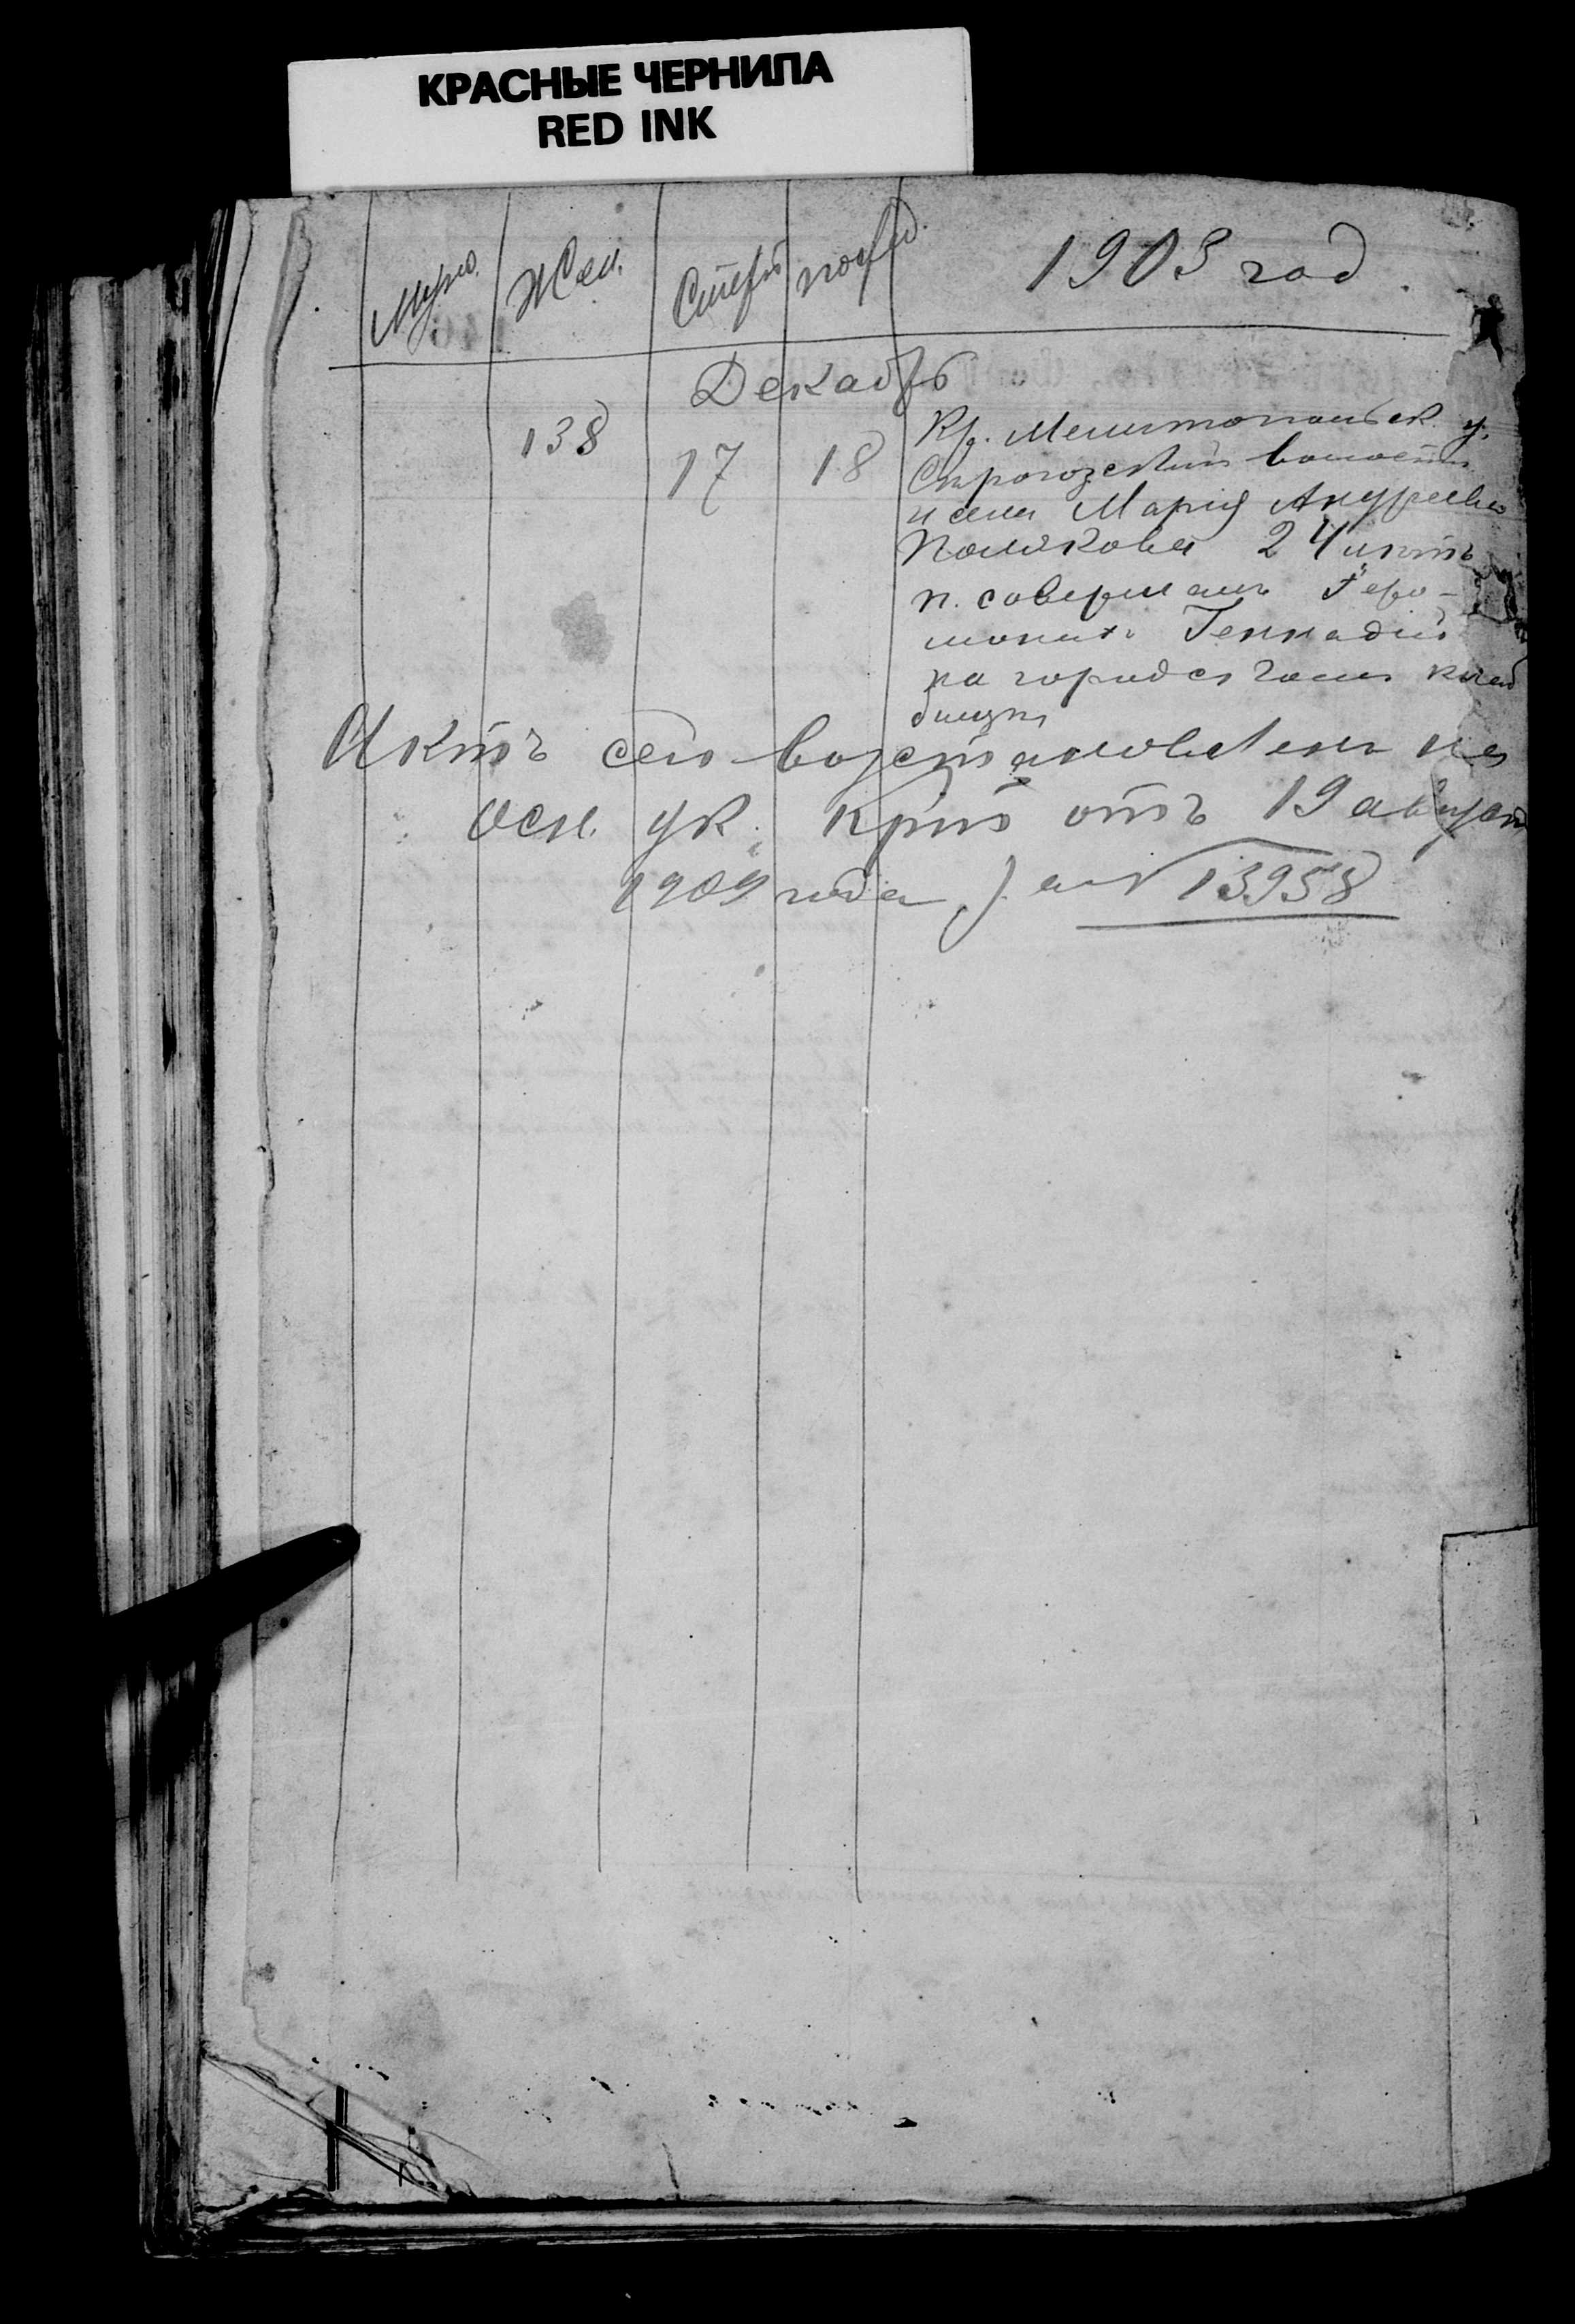 КРАСНЫЕ ЧЕРНИЛА
RED INK
Муж. Жен. Смерт погр. 1903 год.
Декабрь
138 17 18 Кр. Мелитопольск. у.
волости
и села Мария Андреева
Полякова 24 лѣтъ
п. совершалъ Iеро-
монахъ Геннадий
на городскомъ клад
бищѣ
Актъ сей возстановленъ на
осн. ук. отъ 19 августа
1909 года за № 13958